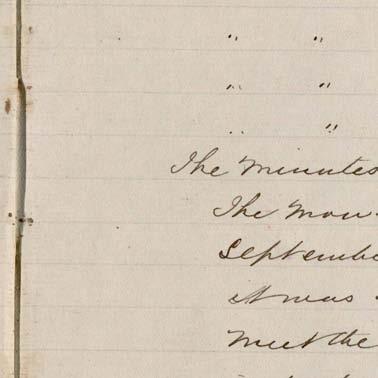 " "
" "
" "
The Minutes
The Mon
Septembe
it was
Meet the